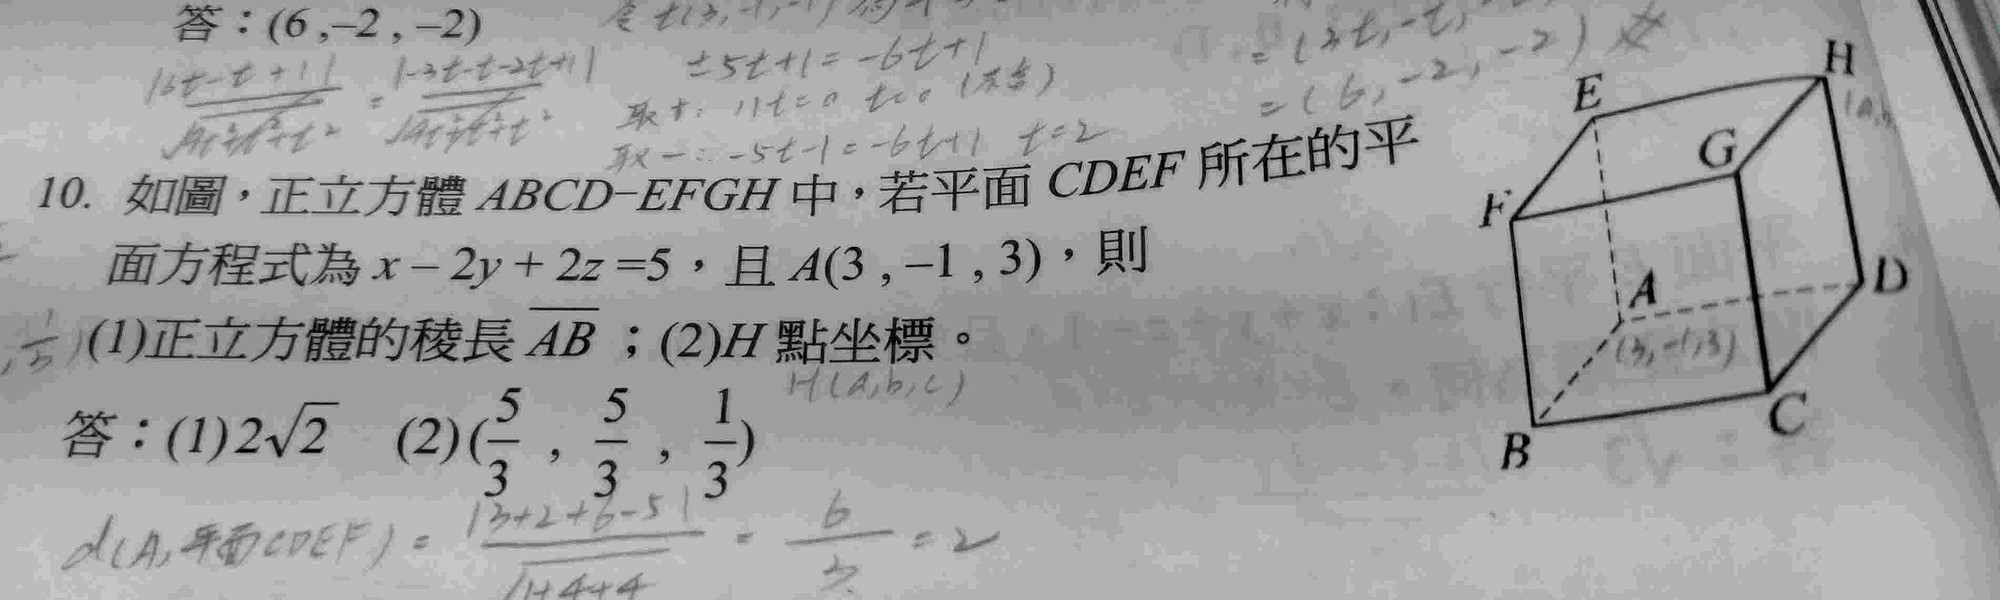 答：(6 ,–2 , –2)
±5t+1 = -6t+1
取+: 11t=0 t=0 (不合)
取-: -5t-1=-6t+1 t=2
= (6, -2, -2)
10. 如圖，正立方體 ABCD–EFGH 中，若平面 CDEF 所在的平
面方程式為 x – 2y + 2z =5，且 A(3 , –1 , 3)，則
(1)正立方體的稜長 \overline{AB} ；(2)H 點坐標。
H(a,b,c)
答：(1)2√2 (2)(5/3 , 5/3 , 1/3)
d(A, 平面CDEF) = |3+2+6-5| / √1+4+4 = 6/3 = 2
H
E
G
F
A
D
(3,-1,3)
C
B